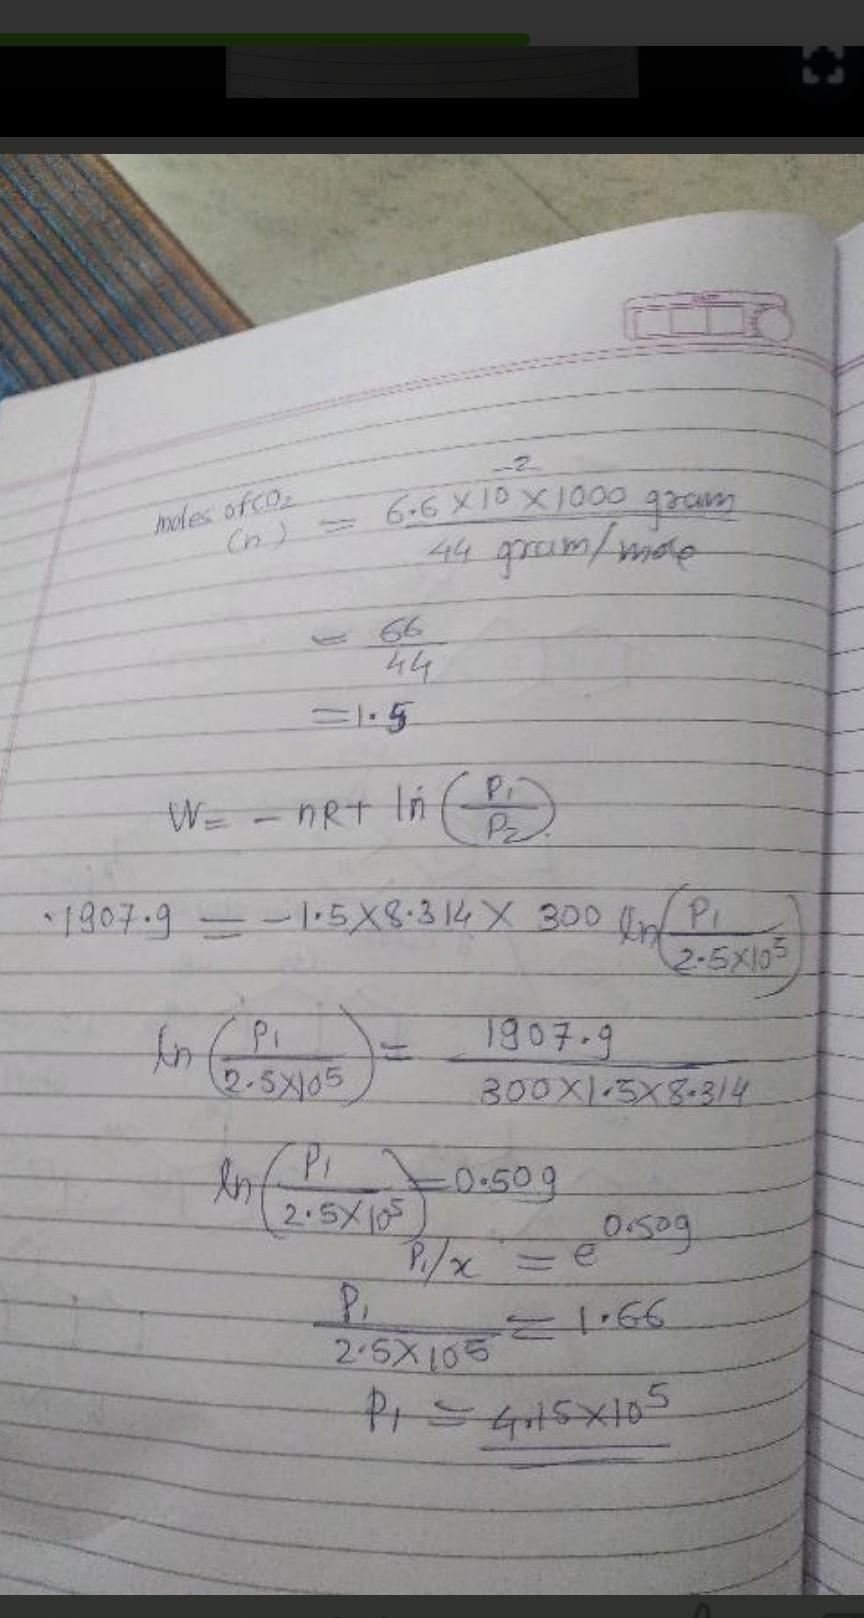 moles of CO₂ (n) = 6.6 × 10⁻² × 1000 gram / 44 gram/mole
= 66 / 44
= 1.5
W = - nRt ln (P₁ / P₂)
.1907.9 = - 1.5 × 8.314 × 300 ln (P₁ / 2.5×10⁵)
ln (P₁ / 2.5×10⁵) = 1907.9 / 300×1.5×8.314
ln (P₁ / 2.5×10⁵) = 0.509
P₁/x = e^0.509
P₁ / 2.5×10⁵ = 1.66
P₁ = 4.15×10⁵